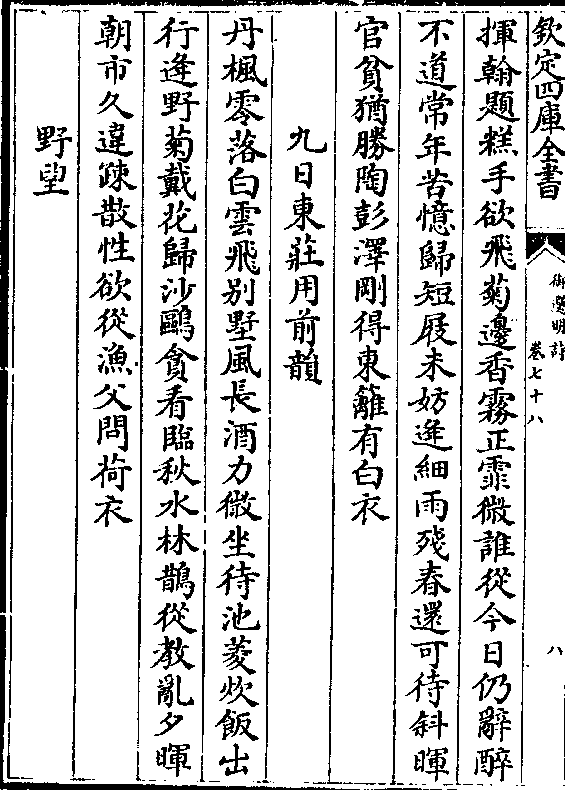 欽定四庫全書
御選明詩
卷七十八
八
揮翰題糕手欲飛菊邊香霧正霏微誰從今日仍辭醉
不道常年苦憶歸短屐未妨逢細雨殘春還可待斜暉
官貧猶勝陶彭澤剛得東籬有白衣
九日東莊用前韻
丹楓零落白雲飛别墅風長酒力微坐待池菱炊飯出
行逢野菊戴花歸沙鷗貪看臨秋水林鵲從教亂夕暉
朝市久違踈散性欲從漁父問荷衣
野望